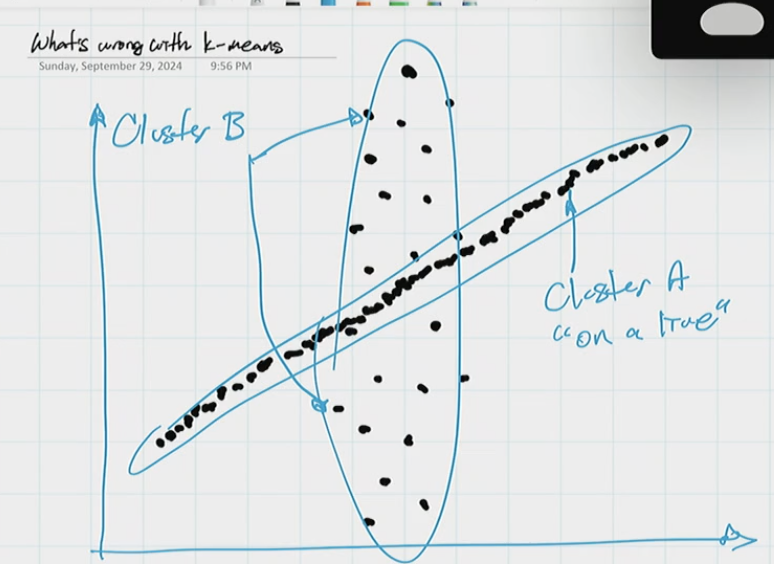 What's wrong with k-means
Sunday, September 29, 2024 9:56 PM
Cluster B
Cluster A
"on a line"